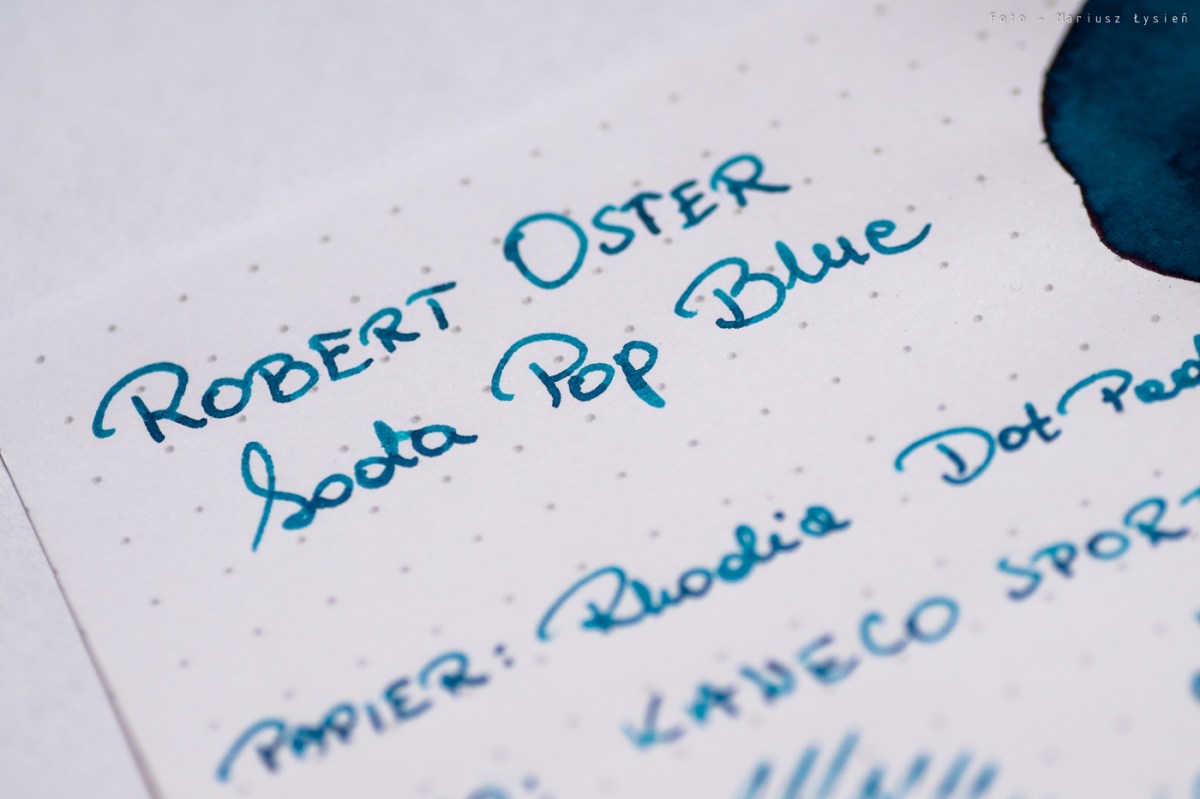 Foto - Mariusz Łysień
ROBERT OSTER
Soda Pop Blue
PAPIER: Rhodia Dot Pad
KAWECO SPORT